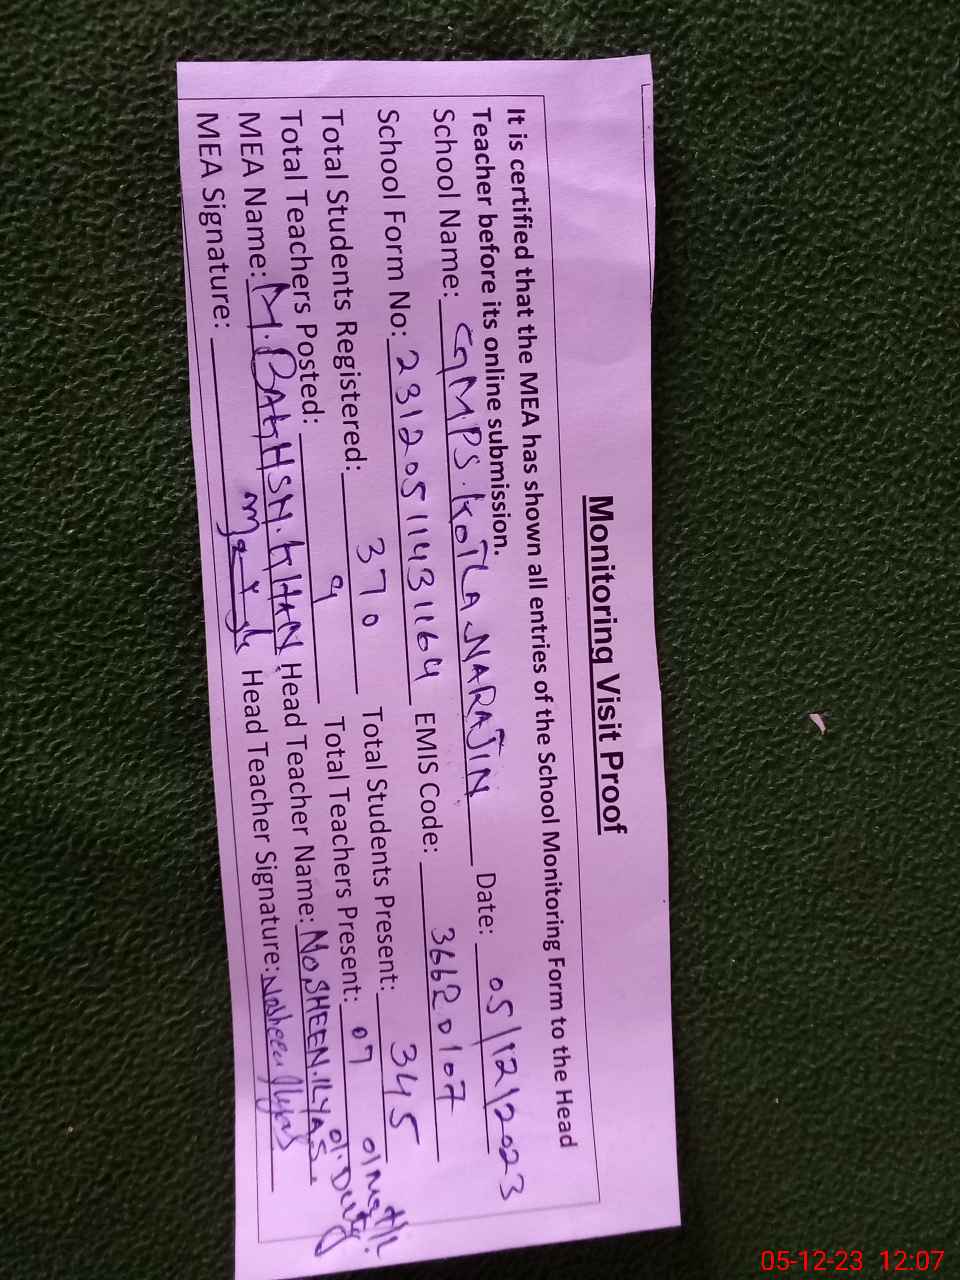 Monitoring Visit Proof
It is certified that the MEA has shown all entries of the School Monitoring Form to the Head
Teacher before its online submission.
School Name: GMPS. KOTLA NARAJIN Date: 05/12/2023
School Form No: 23120511431164 EMIS Code: 36620107
Total Students Registered: 370 Total Students Present: 345
Total Teachers Posted: 9 Total Teachers Present: 07 01 Duty
MEA Name: M. BAKHSH. KHAN Head Teacher Name: NOSHEEN. ILYAS.
MEA Signature: Head Teacher Signature: Nosheen Ilyas
05-12-23 12:07